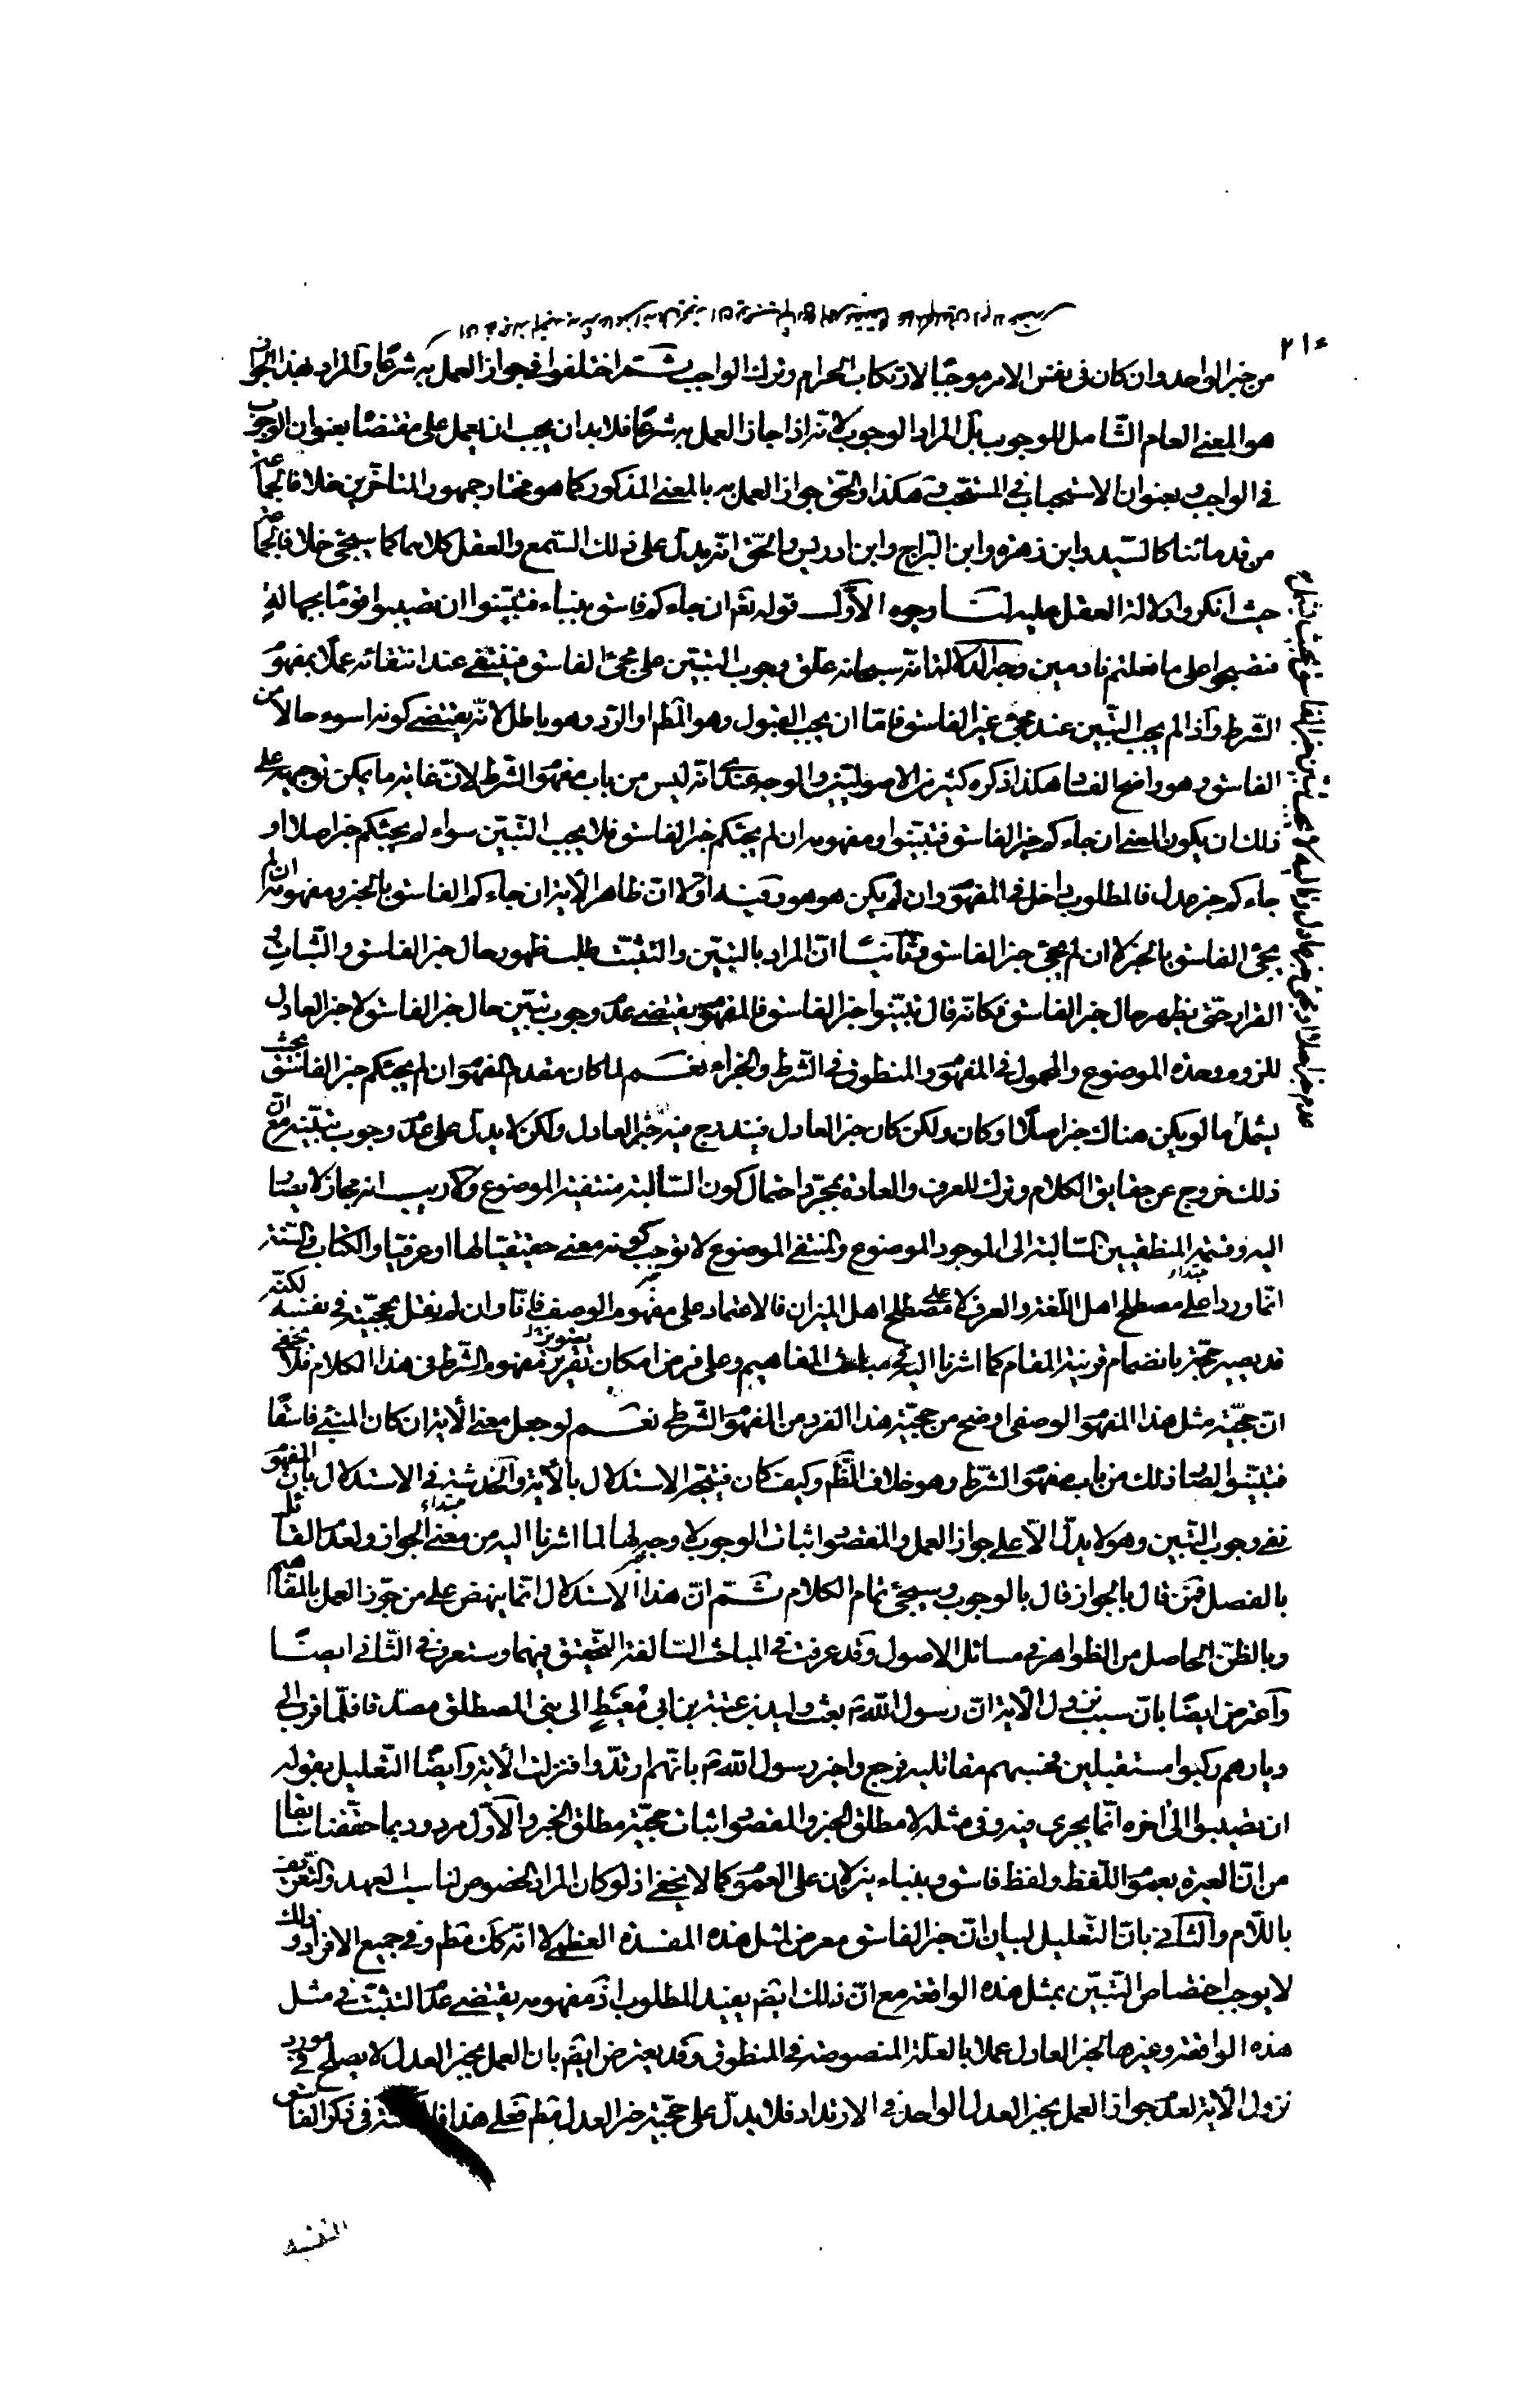 ٢١٤
من خبر الواحد وان كان فى نفس الامر موجبًا لارتكاب الحرام وترك الواجب ثمّ اختلفوا فى جواز العمل به شرعًا والمراد بهذا الجواز
هو المعنى العام الشّامل للوجوب بل المراد الوجوب لانّه اذا جاز العمل به شرعًا فلا بد ان يجب ان يعمل على مقتضاه بعنوان الوجوب
فى الواجب وبعنوان الاستحباب فى المستحب وهكذا والحقّ جواز العمل به بالمعنى المذكور كما هو مختار جمهور المتاخّرين خلافا لجماعة
من قدمائنا كالسّيد وابن زهرة وابن البراج وابن ادريس والحقّ انّه يدلّ على ذلك السّمع والعقل كلاهما كما سيجئ خلافا لجماعة
حيث انكروا دلالة العقل عليه لنا وجوه الاوّل قوله تعم ان جاءكم فاسق بنباء فتبيّنوا ان تصيبوا قومًا بجهالة
فتصبحوا على ما فعلتم نادمين وجه الدلالة انّه سبحانه علّق وجوب التبيّن على مجئ الفاسق فينتفى عند انتفائه عملًا بمفهوم
الشّرط واذا لم يجب التّبين عند مجئ غير الفاسق فامّا ان يجب القبول وهو المطم او الردّ وهو باطل لانّه يقتضى كونه اسوء حالا من
الفاسق وهو واضح الفساد هكذا ذكره كثير من الاصوليّين والوجه عندى انّه ليس من باب مفهوم الشّرط لانّ غاية ما يمكن توجيهه على
ذلك ان يكون المعنى ان جاءكم خبر الفاسق فتبيّنوا ومفهومه ان لم يجئكم خبر الفاسق فلا يجب التّبيّن سواء لم يجئكم خبر اصلا او
جاءكم خبر عدل فالمطلوب داخل فى المفهوم وان لم يكن هو هو وفيه اوّلا انّ ظاهر الآية ان جاءكم الفاسق بالخبر ومفهومه ان لم
يجئ الفاسق بالخبر لا ان لم يجئ خبر الفاسق وثانيًا انّ المراد بالتبيّن والتثبّت طلب ظهور حال خبر الفاسق والثّبات و
القرار حتّى يظهر حال خبر الفاسق فكانّه قال تبيّنوا خبر الفاسق فالمفهوم يقتضى عدم وجوب تبيّن حال خبر الفاسق لا خبر العادل
للزوم وحدة الموضوع والمحمول فى المفهوم والمنطوق فى الشّرط والجزاء نعم لما كان مقدم المفهوم ان لم يجئكم خبر الفاسق بحيث
يشمل ما لو يكن هناك خبر اصلًا او كان ولكن كان خبر العادل فيندرج فيه خبر العادل ولكن لا يدلّ على عدم وجوب تبيّنه مع انّ
ذلك خروج عن حقايق الكلام وترك للعرف والعادة بمجرّد احتمال كون السّالبة منتفية الموضوع ولا ريب انه مجاز لا يصار
اليه وقسمة المنطقيين السّالبة الى الموجود الموضوع والمنتفى الموضوع لا توجب كونه معنى حقيقيّا لها او عرفيّا والكتاب والسّنة
انّما وردا على مصطلح اهل اللّغة والعرف لا على مصطلح اهل الميزان فالاعتماد على مفهوم الوصف فانّا وان لم نقل بحجّيّته فى نفسه لكنّه
قد يصير حجّة بانضمام قرينة المقام كما اشرنا اليه فى مباحث المفاهيم وعلى فرض امكان تصوير تقرير مفهوم الشّرط فى هذا الكلام فلا يخفى
انّ حجّيّة مثل هذا المفهوم الوصفى اوضح من حجيّة هذا الفرد من المفهوم الشّرطى نعم لو جعل معنى الآية ان كان المنبئ فاسقًا
فتبيّنوا لصار ذلك من باب مفهوم الشّرط وهو خلاف الظّم وكيف كان فيتجّه الاستدلال بالآية والخدشة فى الاستدلال بانّ المفهوم
نفى وجوب التّبين وهو لا يدلّ الّا على جواز العمل والمقصود اثبات الوجوب لا وجه لها لما اشرنا اليه من معنى الجواز ولعدم القائل
بالفصل فمن قال بالجواز قال بالوجوب وسيجئ تمام الكلام ثمّ انّ هذا الاستدلال انّما ينهض على من جوّز العمل بالمفاهيم
وبالظنّ الحاصل من الظواهر فى مسائل الاصول وقد عرفت فى المباحث السّالفة التّحقيق فيهما وستعرف فى الثّانى ايضًا
واعترض ايضًا بانّ سبب نزول الآية انّ رسول اللّه ص بعث وليد بن عتبة بن ابى مُعيطٍ الى بنى المصطلق مصدّقا فلمّا قرب الى
ديارهم ركبوا مستقبلين فحسبهم مقاتليه فرجع واخبر رسول اللّه ص بانّهم ارتدّوا فنزلت الآية وايضًا التّعليل بقوله
ان تصيبوا الى اخره انّما يجرى فيه وفى مثله لا مطلق الخبر والمقصود اثبات حجيّة مطلق الخبر والاوّل مردود بما حقّقناه سابقا
من انّ العبرة بعموم اللّفظ ولفظ فاسق وبنباء ينزلان على العموم كما لا يخفى اذ لو كان المراد الخصوص لناسب العهد والتّعريف
باللّام والثّانى بانّ التّعليل لبيان انّ خبر الفاسق معرض لمثل هذه المفسدة العظمى لا انّه كك مطم وفى جميع الافراد وذلك
لا يوجب اختصاص التّبيّن بمثل هذه الواقعة مع انّ ذلك ايضم يفيد المطلوب اذ مفهومه يقتضى عدم التثبّت فى مثل
هذه الواقعة وغيرها لخبر العادل عملا بالعلّة المنصوصة فى المنطوق وقد يعترض ايضم بان العمل بخبر العدل لا يصلح فى مورد
نزول الآية لعدم جواز العمل بخبر العدل الواحد فى الارتداد فلا يدلّ على حجّيّة خبر العدل مطم فعلى هذا فى ذكر الفاسق